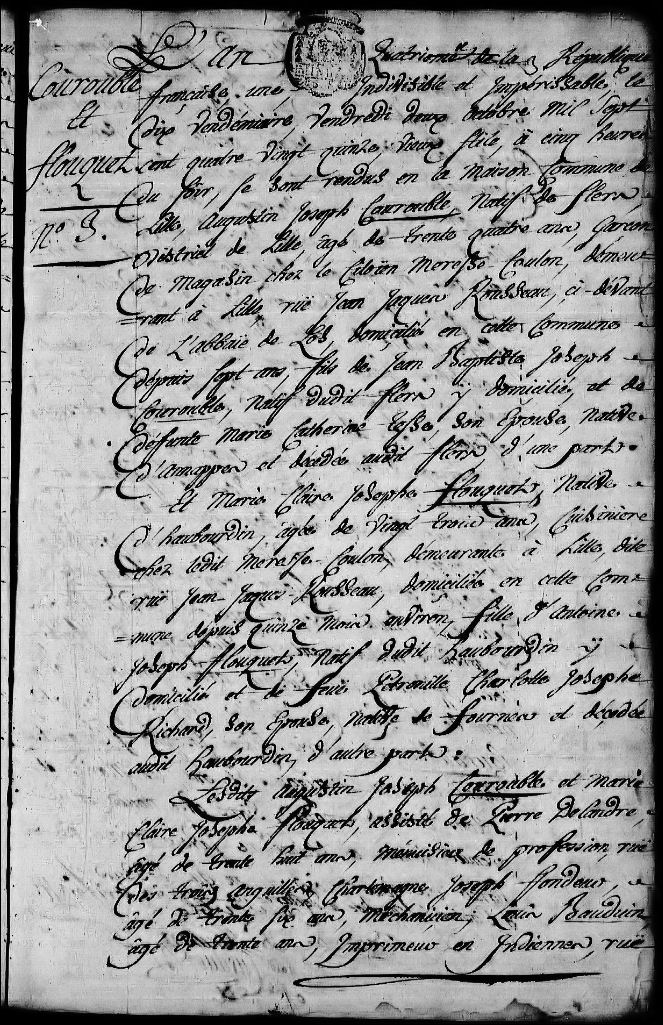 Courouble
Et
flouquet
n° 3.
L'an Quatrieme de la République
francaise une, Indivisible et Impérissable, le
dix Vendémiaire, Vendredi deux octobre mil sept
cent quatre vingt quinze, vieux stile, à cinq heures
du soir, se sont rendus en la maison Commune de
Lille, Augustin Joseph Courouble, Natif de flers,
District de Lille, agé de trente quatre ans, Garçon
de Magasin chez le Citoïen Meresse-Coulon, demeu=
=rant à Lille rue Jean Jaques Rousseau, ci-devant
de L'abbaïe de Los, domicilié en cette Commune
depuis sept ans, fils de Jean Baptiste Joseph
Courouble, Natif dudit flers y domicilié, et de
défunte Marie Catherine Tesse, son Epouse, Native
d'annappes et décédée audit flers, d'une part.
Et Marie Claire Josephe flouquet, Native
d'haubourdin, agée de vingt trois ans, Cuisiniere
chez ledit Meresse-Coulon, demeurante à Lille, dite
rue Jean-Jaques-Rousseau, domiciliée en cette Com=
=mune depuis quinze mois environ, fille d'Antoine
Joseph flouquet, Natif dudit haubourdin y
domicilié et de feue Petronille Charlotte Josephe
Richard, son Epouse, Native de fournes et décédée
audit haubourdin, d'autre part.
Lesdits Augustin Joseph Courouble et Marie
Claire Josephe flouquet, assistés de Pierre Delandre,
agé de trente huit ans, Menuisier de profession, rue
des trois anguilles, Charlemagne Joseph
agé de trente six ans, Mechanicien, Louis Bauduin
agé de trente ans, Imprimeur en Indiennes, rue